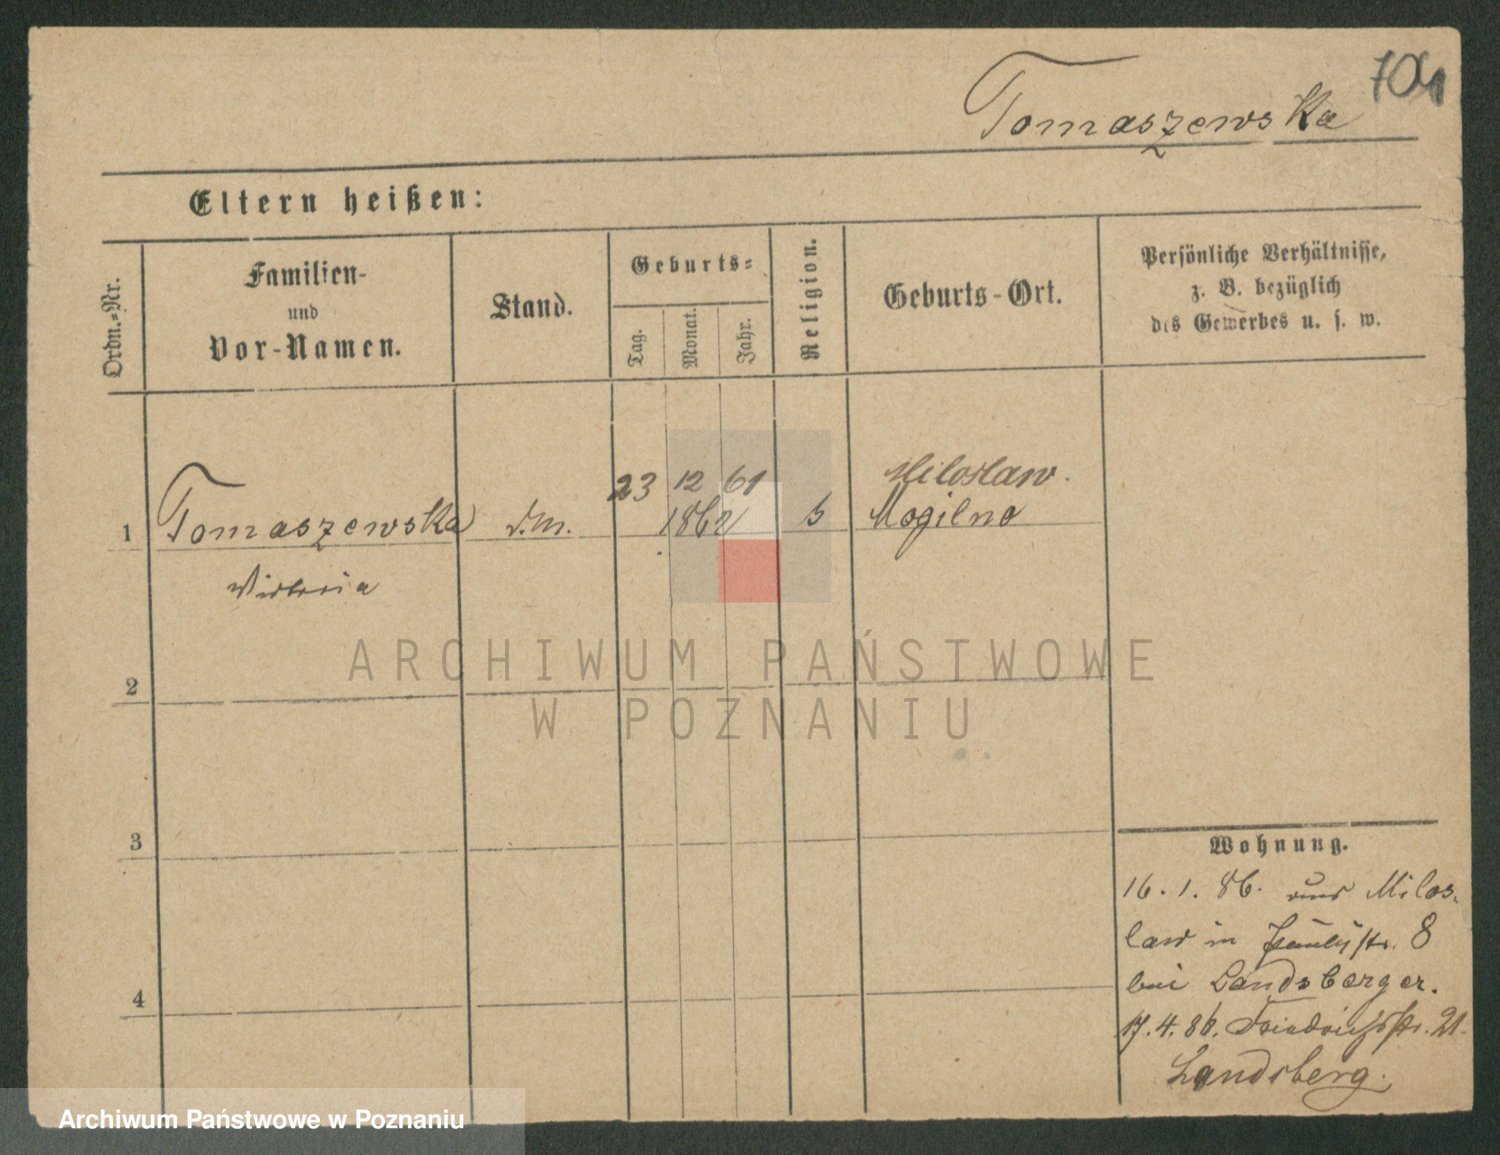 704
Tomaszewska
Eltern heißen:
Ordn.-Nr.
Familien-
und
Vor-Namen.
Stand.
Geburts-
Tag.
Monat.
Jahr.
Religion.
Geburts-Ort.
Persönliche Verhältnisse,
z. B. bezüglich
des Gewerbes u. s. w.
23 12 61 Miloslaw.
1 Tomaszewska d.M. 1862 Mogilno
Victoria
2
3
4
Wohnung.
16. 1. 86. aus Milos-
law in Paulistr. 8
bei Landsberger.
17. 4. 86. Friedrichstr. 21.
Landsberg.
ARCHIWUM PAŃSTWOWE
W POZNANIU
Archiwum Państwowe w Poznaniu